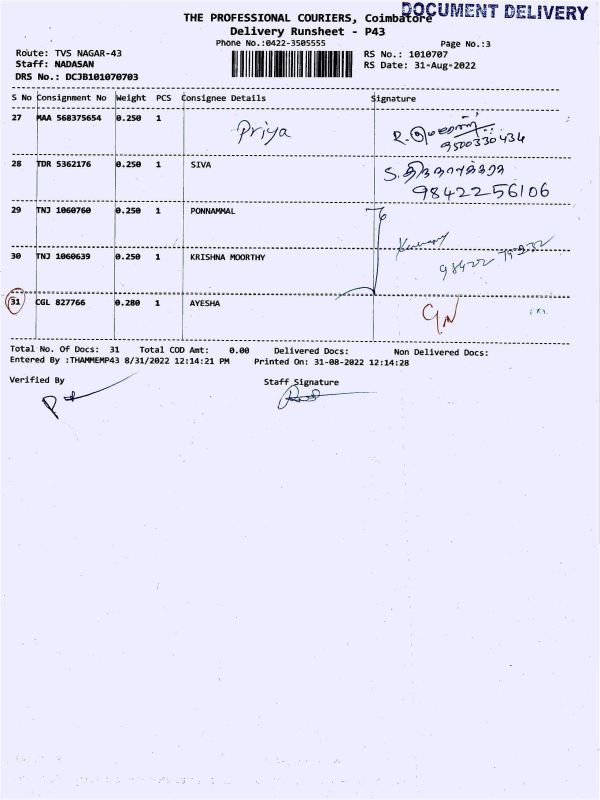 DOCUMENT DELIVERY
THE PROFESSIONAL COURIERS, Coimbatore
Delivery Runsheet - P43
Phone No.:0422-3505555
Page No.:3
Route: TVS NAGAR-43
RS No.: 1010707
Staff: NADASAN
RS Date: 31-Aug-2022
DRS No.: DCJB101070703
S No Consignment No Weight PCS Consignee Details Signature
27 MAA 568375654 0.250 1 Priya
9500330434
28 TDR 5362176 0.250 1 SIVA
9842256106
29 TNJ 1060760 0.250 1 PONNAMMAL
30 TNJ 1060639 0.250 1 KRISHNA MOORTHY
98422
31 CGL 827766 0.280 1 AYESHA
Total No. Of Docs: 31 Total COD Amt: 0.00 Delivered Docs: Non Delivered Docs:
Entered By :THAMMEMP43 8/31/2022 12:14:21 PM Printed On: 31-08-2022 12:14:28
Verified By Staff Signature